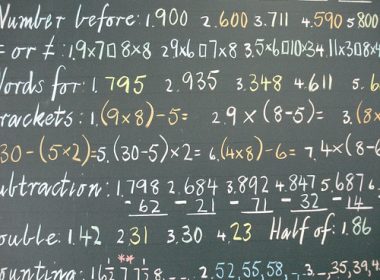 Number before: 1. 900 2. 600 3. 711 4. 590 5 800
= or ≠: 1. 9x7□8x8 2 9x6□7x8 3. 5x6□10x3 4. 11x3□8x4
Words for: 1. 795 2. 935 3. 348 4. 611 5. 6
Brackets: 1. (9x8)-5= 2. 9x(8-5)= 3. (8x
30-(5x2)= 5. (30-5)x2= 6. (4x8)-6= 7. 4x(8-6
Subtraction: 1. 798 2. 684 3. 892 4. 847 5. 687 6.
-62 -21 -71 -32 -14
Double: 1. 42 2. 31 3. 30 4. 23 Half of: 1. 86
Counting: 2. 52, 55, 58, 3. 35, 39, 4